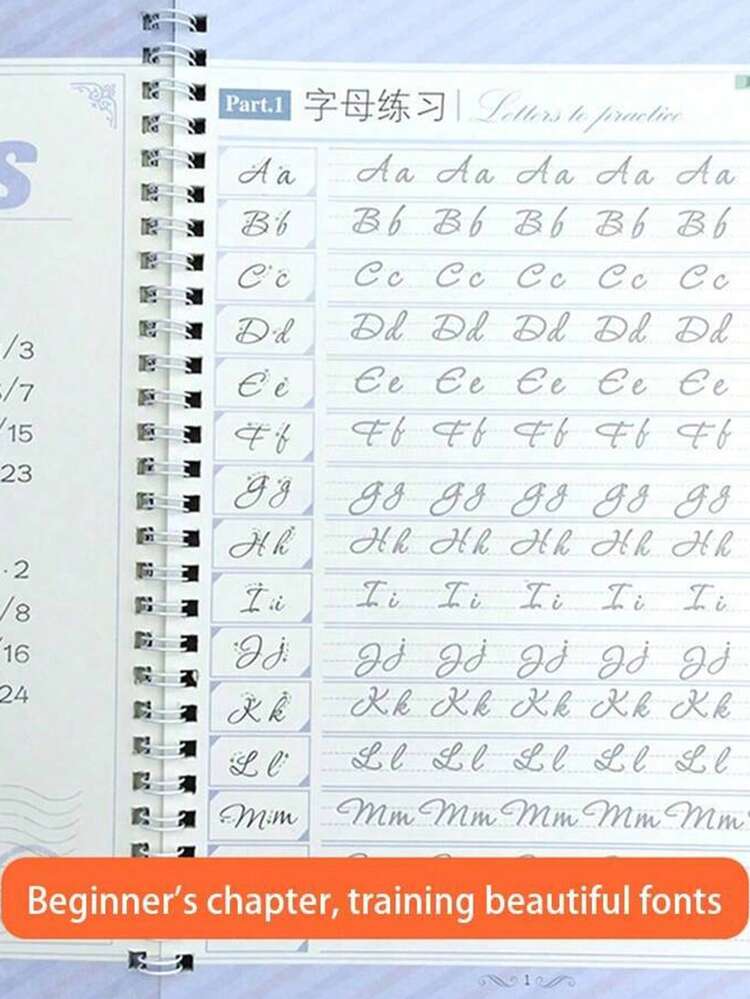 s
/3
/7
/15
23
2
/8
/16
24
Part.1 字母练习 Letters to practice
Aa Aa Aa Aa Aa Aa
Bb Bb Bb Bb Bb Bb
Cc Cc Cc Cc Cc Cc
Dd Dd Dd Dd Dd Dd
Ee Ee Ee Ee Ee Ee
Ff Ff Ff Ff Ff Ff
Gg Gg Gg Gg Gg Gg
Hh Hh Hh Hh Hh Hh
Ii Ii Ii Ii Ii Ii
Jj Jj Jj Jj Jj Jj
Kk Kk Kk Kk Kk Kk
Ll Ll Ll Ll Ll Ll
Mm Mm Mm Mm Mm Mm
Beginner's chapter, training beautiful fonts
1